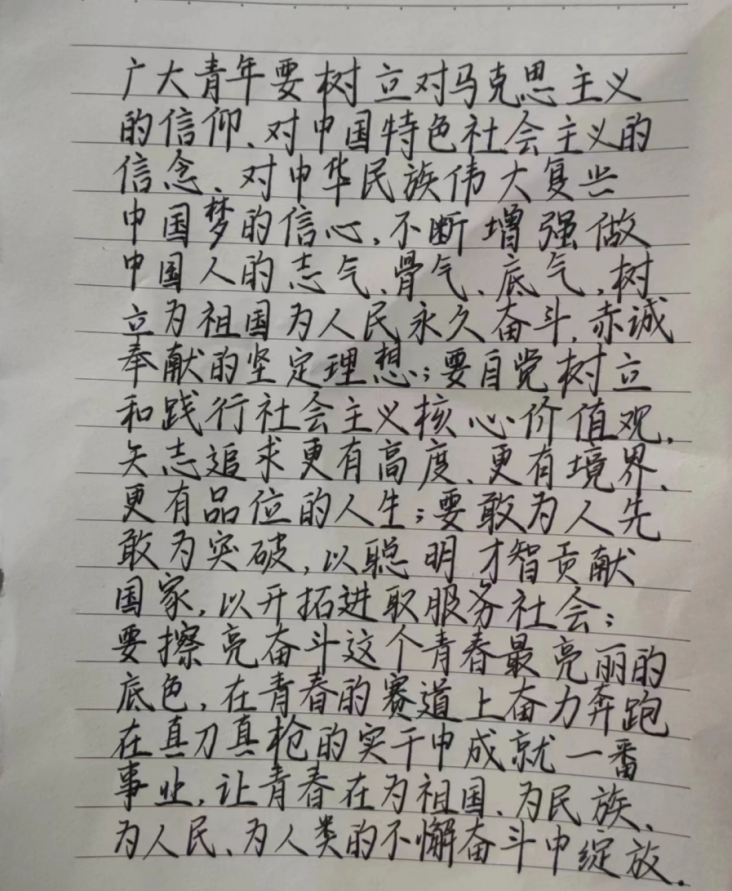 广大青年要树立对马克思主义
的信仰、对中国特色社会主义的
信念、对中华民族伟大复兴
中国梦的信心,不断增强做
中国人的志气、骨气、底气,树
立为祖国为人民永久奋斗,赤诚
奉献的坚定理想;要自觉树立
和践行社会主义核心价值观,
矢志追求更有高度、更有境界、
更有品位的人生;要敢为人先
敢为突破,以聪明才智贡献
国家,以开拓进取服务社会;
要擦亮奋斗这个青春最亮丽的
底色,在青春的赛道上奋力奔跑
在真刀真枪的实干中成就一番
事业,让青春在为祖国、为民族、
为人民、为人类的不懈奋斗中绽放.